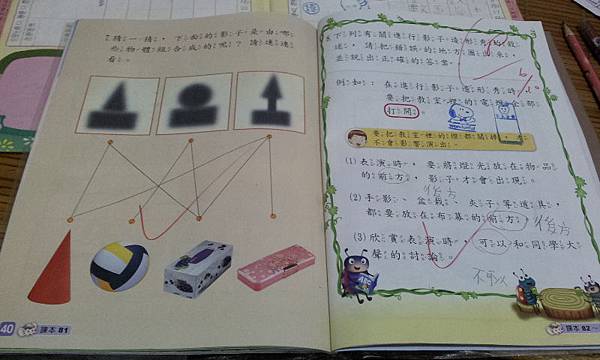 2 猜一猜,下面的影子是由哪
些物體組合成的呢?請連連
看。
40
課本 81
下列有關進行影子造形秀的敘
述,請把錯誤的地方圈出來,
並說出正確的答案。
例如:在進行影子造形秀時,
要把教室裡的電燈全部
打開。
要把教室裡的燈都關掉,才
不會影響演出。
(1) 表演時,要將燈光放在物品
的前方,影子才會出現。
後方
(2) 手影、盆栽、夾子等道具,
都要放在布幕的前方。
後方
(3) 欣賞表演時,可以和同學大
聲的討論。
不可以
課本 82~